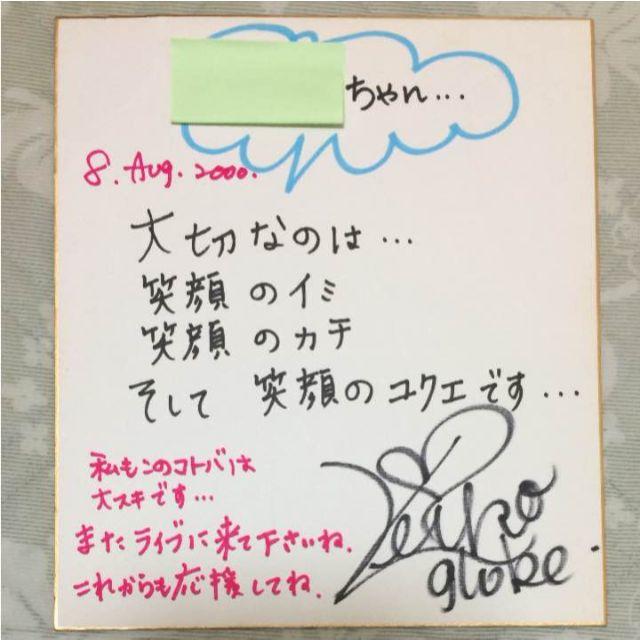 ちゃん...
8. Aug. 2000.
大切なのは...
笑顔のイミ
笑顔のカチ
そして 笑顔のユクエです...
私もこのコトバは
大スキです...
またライブに来て下さいね.
これからも応援してね.
Keiko
globe.